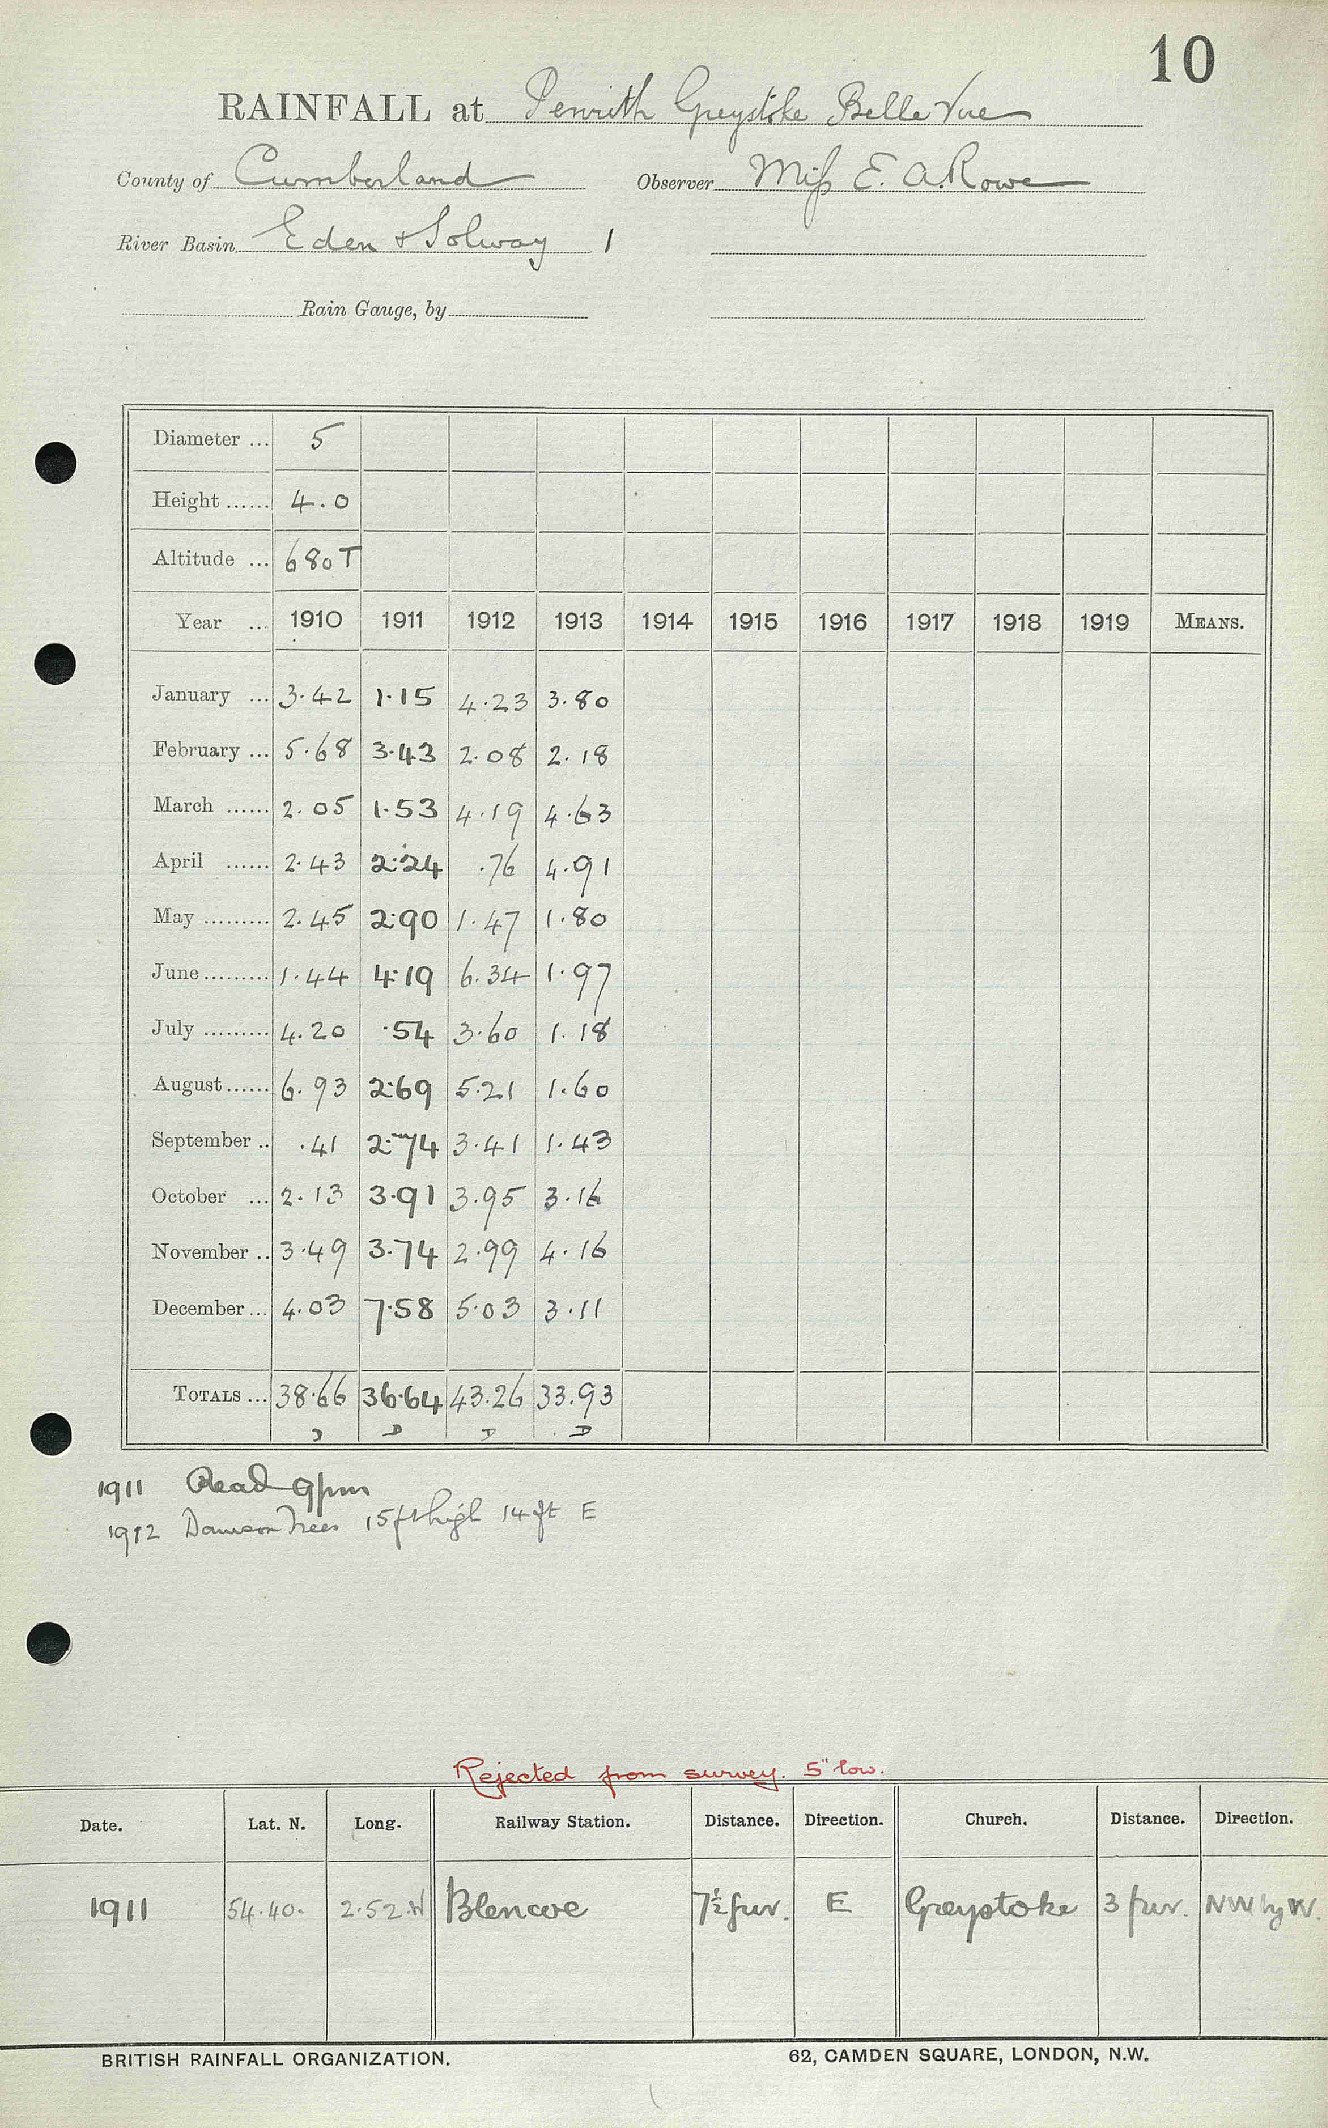 10
RAINFALL at Penrith Greystoke Belle Vue
County of Cumberland Observer Miss E. A. Rowe
River Basin Eden & Solway 1
Rain Gauge, by
Diameter ... 5
Height ...... 4.0
Altitude ... 680T
Year ... 1910 1911 1912 1913 1914 1915 1916 1917 1918 1919 MEANS.
January ... 3.42 1.15 4.23 3.80
February ... 5.68 3.43 2.08 2.18
March ...... 2.05 1.53 4.19 4.63
April ...... 2.43 2.24 .76 4.91
May ......... 2.45 2.90 1.47 1.80
June ......... 1.44 4.19 6.34 1.97
July ......... 4.20 .54 3.60 1.18
August ...... 6.93 2.69 5.21 1.60
September .. .41 2.74 3.41 1.43
October ... 2.13 3.91 3.95 3.16
November .. 3.49 3.74 2.99 4.16
December ... 4.03 7.58 5.03 3.11
TOTALS ... 38.66 36.64 43.26 33.93
D D D D
1911 Read 9pm
1912 Damson Trees 15ft high 14ft E
Rejected from survey. 5" low.
Date. Lat. N. Long. Railway Station. Distance. Direction. Church. Distance. Direction.
1911 54.40. 2.52.W Blencoe 7½ fur. E Greystoke 3 fur. NW by W.
BRITISH RAINFALL ORGANIZATION. 62, CAMDEN SQUARE, LONDON, N.W.